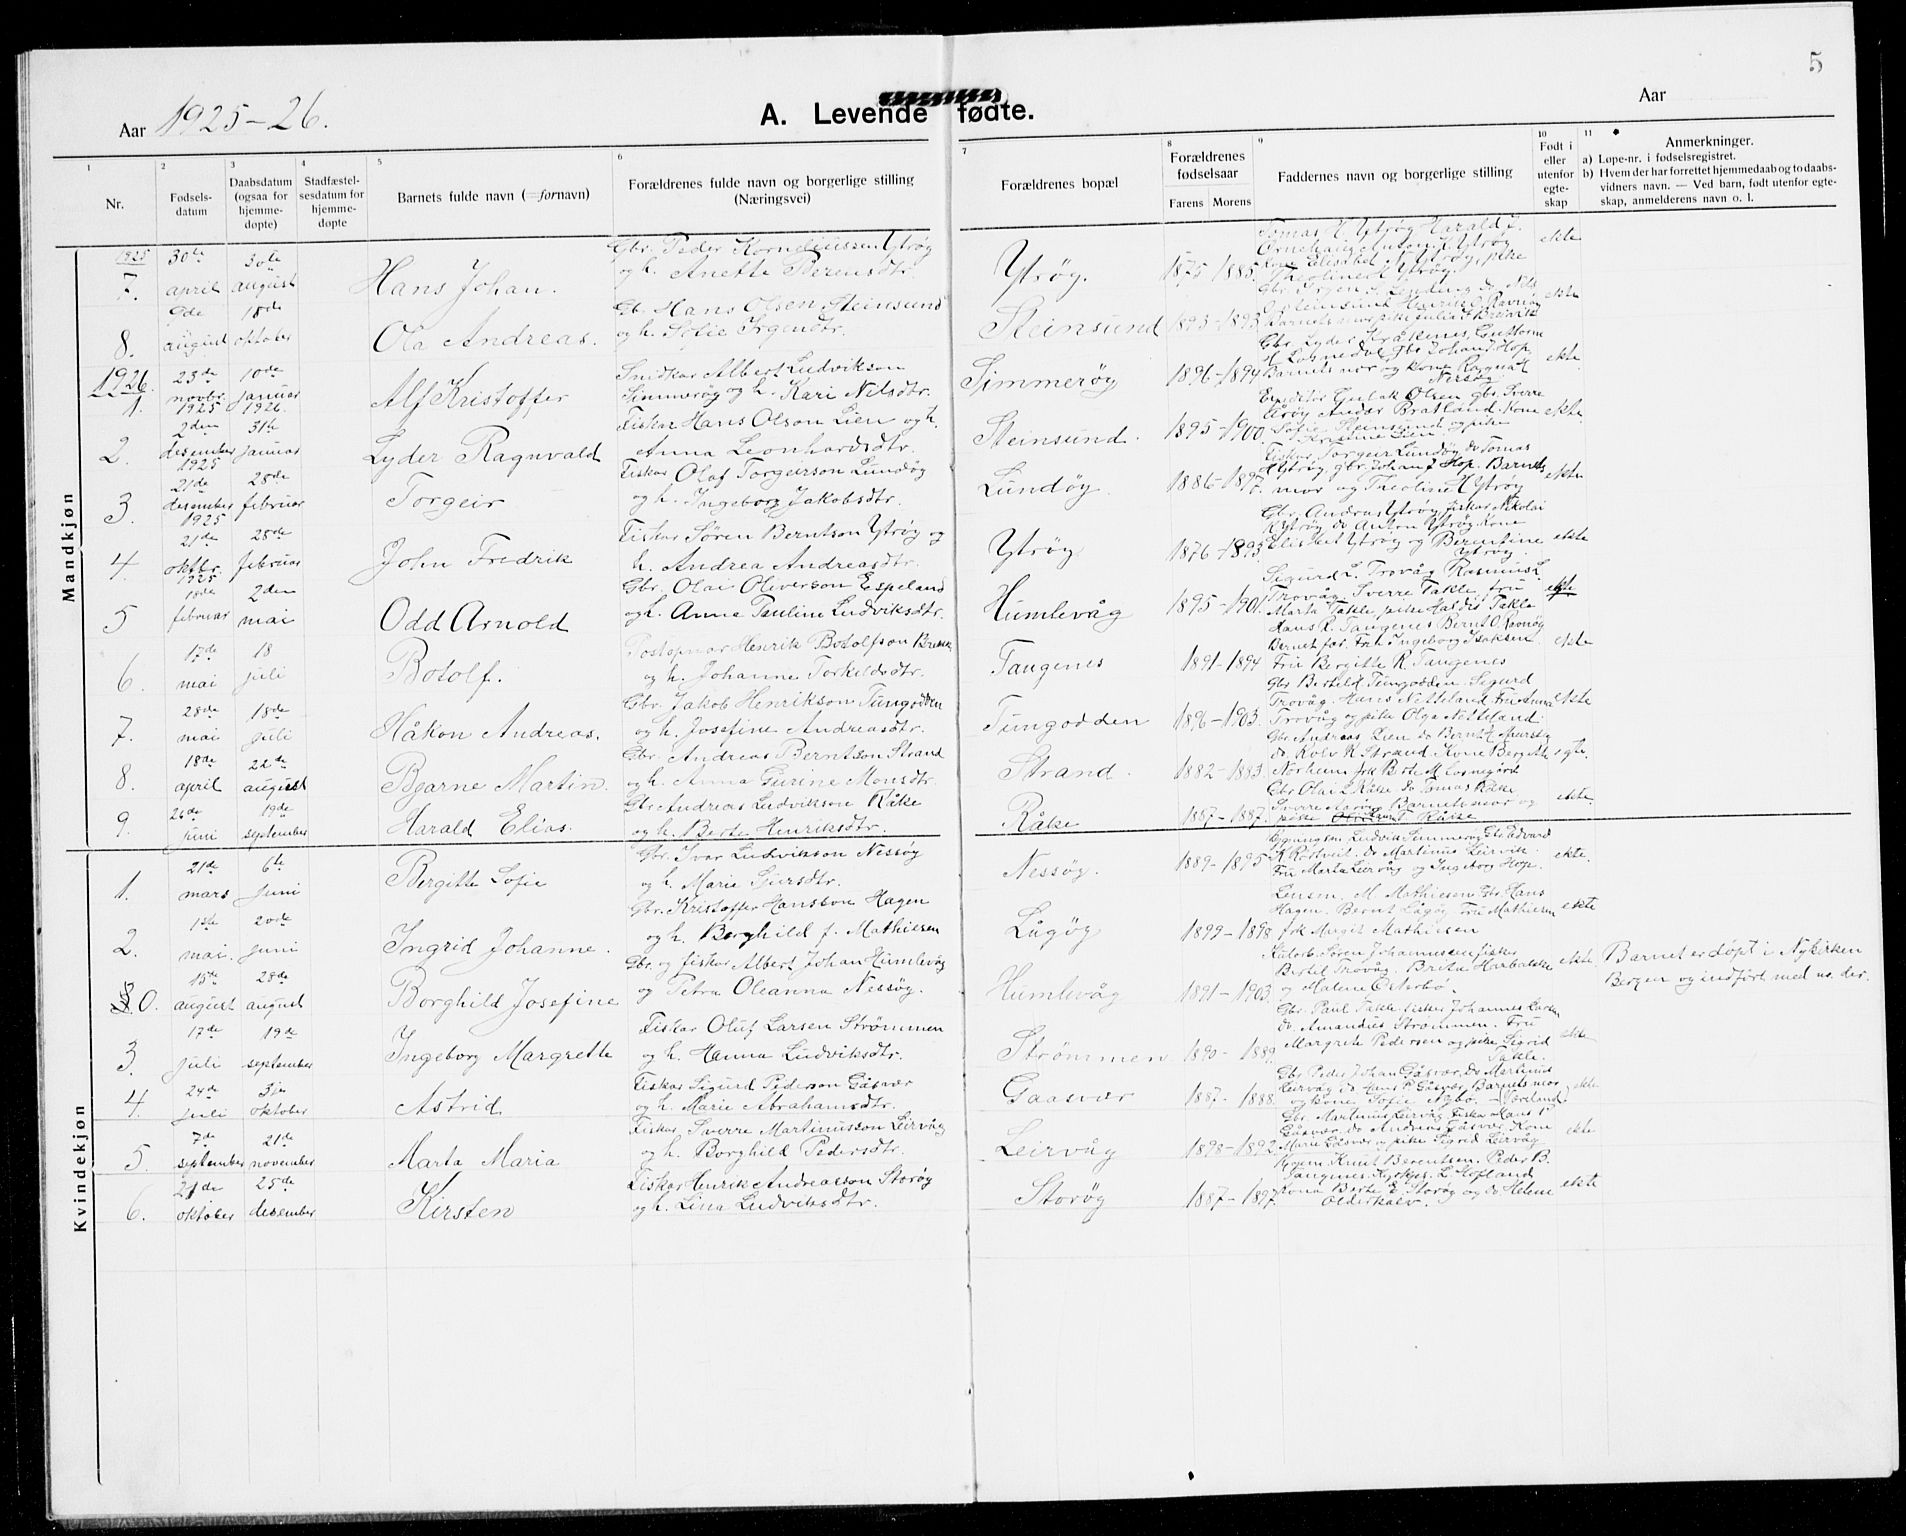 5
Aar 1925-26.
A. Levende fødte.
Aar
1 2 3 4 5 6 7 8 9 10 11
Nr.
Fødsels-
datum
Daabsdatum
(ogsaa for
hjemme-
døpte)
Stadfæstel-
sesdatum for
hjemme-
døpte
Barnets fulde navn (=fornavn)
Forældrenes fulde navn og borgerlige stilling
(Næringsvei)
Forældrenes bopæl
Forældrenes
fødselsaar
Farens Morens
Faddernes navn og borgerlige stilling
Født i
eller
utenfor
egte-
skap
Anmerkninger.
a) Løpe-nr. i fødselsregistret.
b) Hvem der har forrettet hjemmedaab og to daabs-
vidners navn. — Ved barn, født utenfor egte-
skap, anmelderens navn o. l.
Mandkjøn
1925
7. 30te april 30te august Hans Johan.
Gbr. Peder Korneliussen Ytrøy
og h. Anette Berensdtr.
Ytrøy. 1875-1885.
Tomas H. Ytrøy Harald J.
ekte
8. 9de august 18de oktober Ola Andreas.
Gb. Hans Olsen Steinsund
og h. Sofie Irgensdtr.
Steinsund 1893-1893
ekte
1926.
1. 23de novbr. 1925 10de januar 1926. Alf Kristoffer
Snidkar Albert Ludvikson
Simmerøy og h. Kari Nilsdtr.
Simmerøy 1896-1894
Barnets mor og kone Ragna H
ekte
2. 2den desember 1925 31te januar Lyder Ragnvald
Fiskar Hans Olson Lien og h.
Anna Leonhardsdtr.
Steinsund. 1895-1900.
Sofie Steinsund og pike
ekte
3. 21de desember 1925 28de februar Torgeir
Fiskar Olaf Torgeirson Lundøy
og h. Ingeborg Jakobsdtr.
Lundøy. 1886-1897.
Fiskar Torgeir Lundøy do Tomas
H Ytrøy, gbr. Johan J Hop. Barnets
mor og Theoline H Ytrøy
ekte
4. 21de oktbr. 1925 28de februar John Fredrik
Fiskar Søren Berntson Ytrøy og
h. Andrea Andreasdtr.
Ytrøy 1876-1895
Gbr. Andreas Ytrøy fiskar Nikolai
K Ytrøy do Anton Ytrøy Kone
Elisabet Ytrøy og Berentine
Ytrøy.
ekte
5 18de februar 2den mai Odd Arnold
Gbr. Olai Oliverson Espeland
og h. Anna Pauline Ludviksdtr.
Humlevåg 1895-1901.
Sigurd L. Trovåg Rasmus L.
Trovåg. Sverre Takle, fru
Marta Takle, pike Haldis Takle
ekte
6. 17de mai 18 juli Botolf.
Postopnar Henrik Botolfson
og h. Johanne Torkildsdtr.
Tangenes 1891-1894
Hans R. Tangenes Bernt O. Ravnøy
Barnet far. Frk Ingeborg Isaksen
Fru Bergitte R. Tangenes
ekte
7. 28de mai 18de juli Håkon Andreas.
Gbr. Jakob Henrikson Tungodden
og h. Josefine Andreasdtr.
Tungodden 1896-1903.
Gbr Bertild Tungodden. Sigurd
Trovåg. Hans Netteland. Fru Anna
Trovåg og pike Olga Netteland.
ekte
8. 18de april 22de august Bjarne Martin.
Gbr. Andreas Berntson Strand
og h. Anna Gurine Monsdtr.
Strand. 1882-1883.
do Rolv R. Strand Kone Bergitte
egte.
9. 26de juni 19de september Harald Elias.
Gbr Andreas Ludvikson Råke
og h. Berte Henriksdtr.
Råke 1887-1887.
Gbr Olai L Råke do Tomas Råke
Sverre Aarøy Barnets mor og
ekte.
Kvindekjøn
1. 21de mars 6te juni Bergitte Sofie
Gbr. Ivar Ludvikson Nessøy
og h. Marie Sjursdtr.
Nessøy. 1889-1895
Fru Marta Leirvåg og Ingeborg Hop.
ekte.
2. 1ste mai. 20de juni Ingrid Johanne.
Gbr. Kristoffer Hansson Hagen
og h. Borghild f. Mathiesen
Lågøy 1899-1898
Lensm. M. Mathiesen Gbr. Hans
Hagen. Bernt Lågøy Fru Mathiesen
frk Margit Mathiesen
ekte
0. 15de august 28de august Borghild Josefine
Gbr. og fiskar Albert Johan Humlevåg
og Petra Oleanna Nessøy.
Humlevåg 1891-1903.
og Malene Østerbø.
ekte
Barnet er døpt i Nykirken
Bergen og indført med no. der.
3. 17de juli 19de september Ingeborg Margrette
Fiskar Oluf Larsen Strømmen
og h. Hanna Ludviksdtr.
Strømmen 1890-1889.
Gbr. Paul Takle fisker Johannes Larsen
do. Amandus Strømmen. Fru
Margrete Pedersen og pike Sigrid
Takle.
ekte
4. 24de juli 3je oktober Astrid
Fiskar Sigurd Pederson Gåsvær
og h. Marie Abrahamsdtr.
Gaasvær 1887-1888.
Gbr. Peder Johan Gåsvær. Do Martinus
Leirvåg do Hans P. Gåsvær. Barnets mor
og kone Sofie Nybø.
ekte
5. 7de september 21de november Marta Maria
Fiskar Sverre Martinusson Leirvåg
og h. Borghild Pedersdtr.
Leirvåg 1898-1892.
Gbr. Martinus Leirvåg. Fiska Hans P.
Gåsvær. do Andreas Gåsvær. Kone
Marie Gåsvær og pike Sigrid Leirvåg
ekte
6. 21de oktober 25de desember Kirsten
Fiskar Henrik Andreasson Storøy
og h. Lina Ludviksdtr.
Storøy 1887-1897.
Knut Berentsen. Peder B.
Tangenes.
Kona Berte E Storøy og do Helene
Olderkalv.
ekte